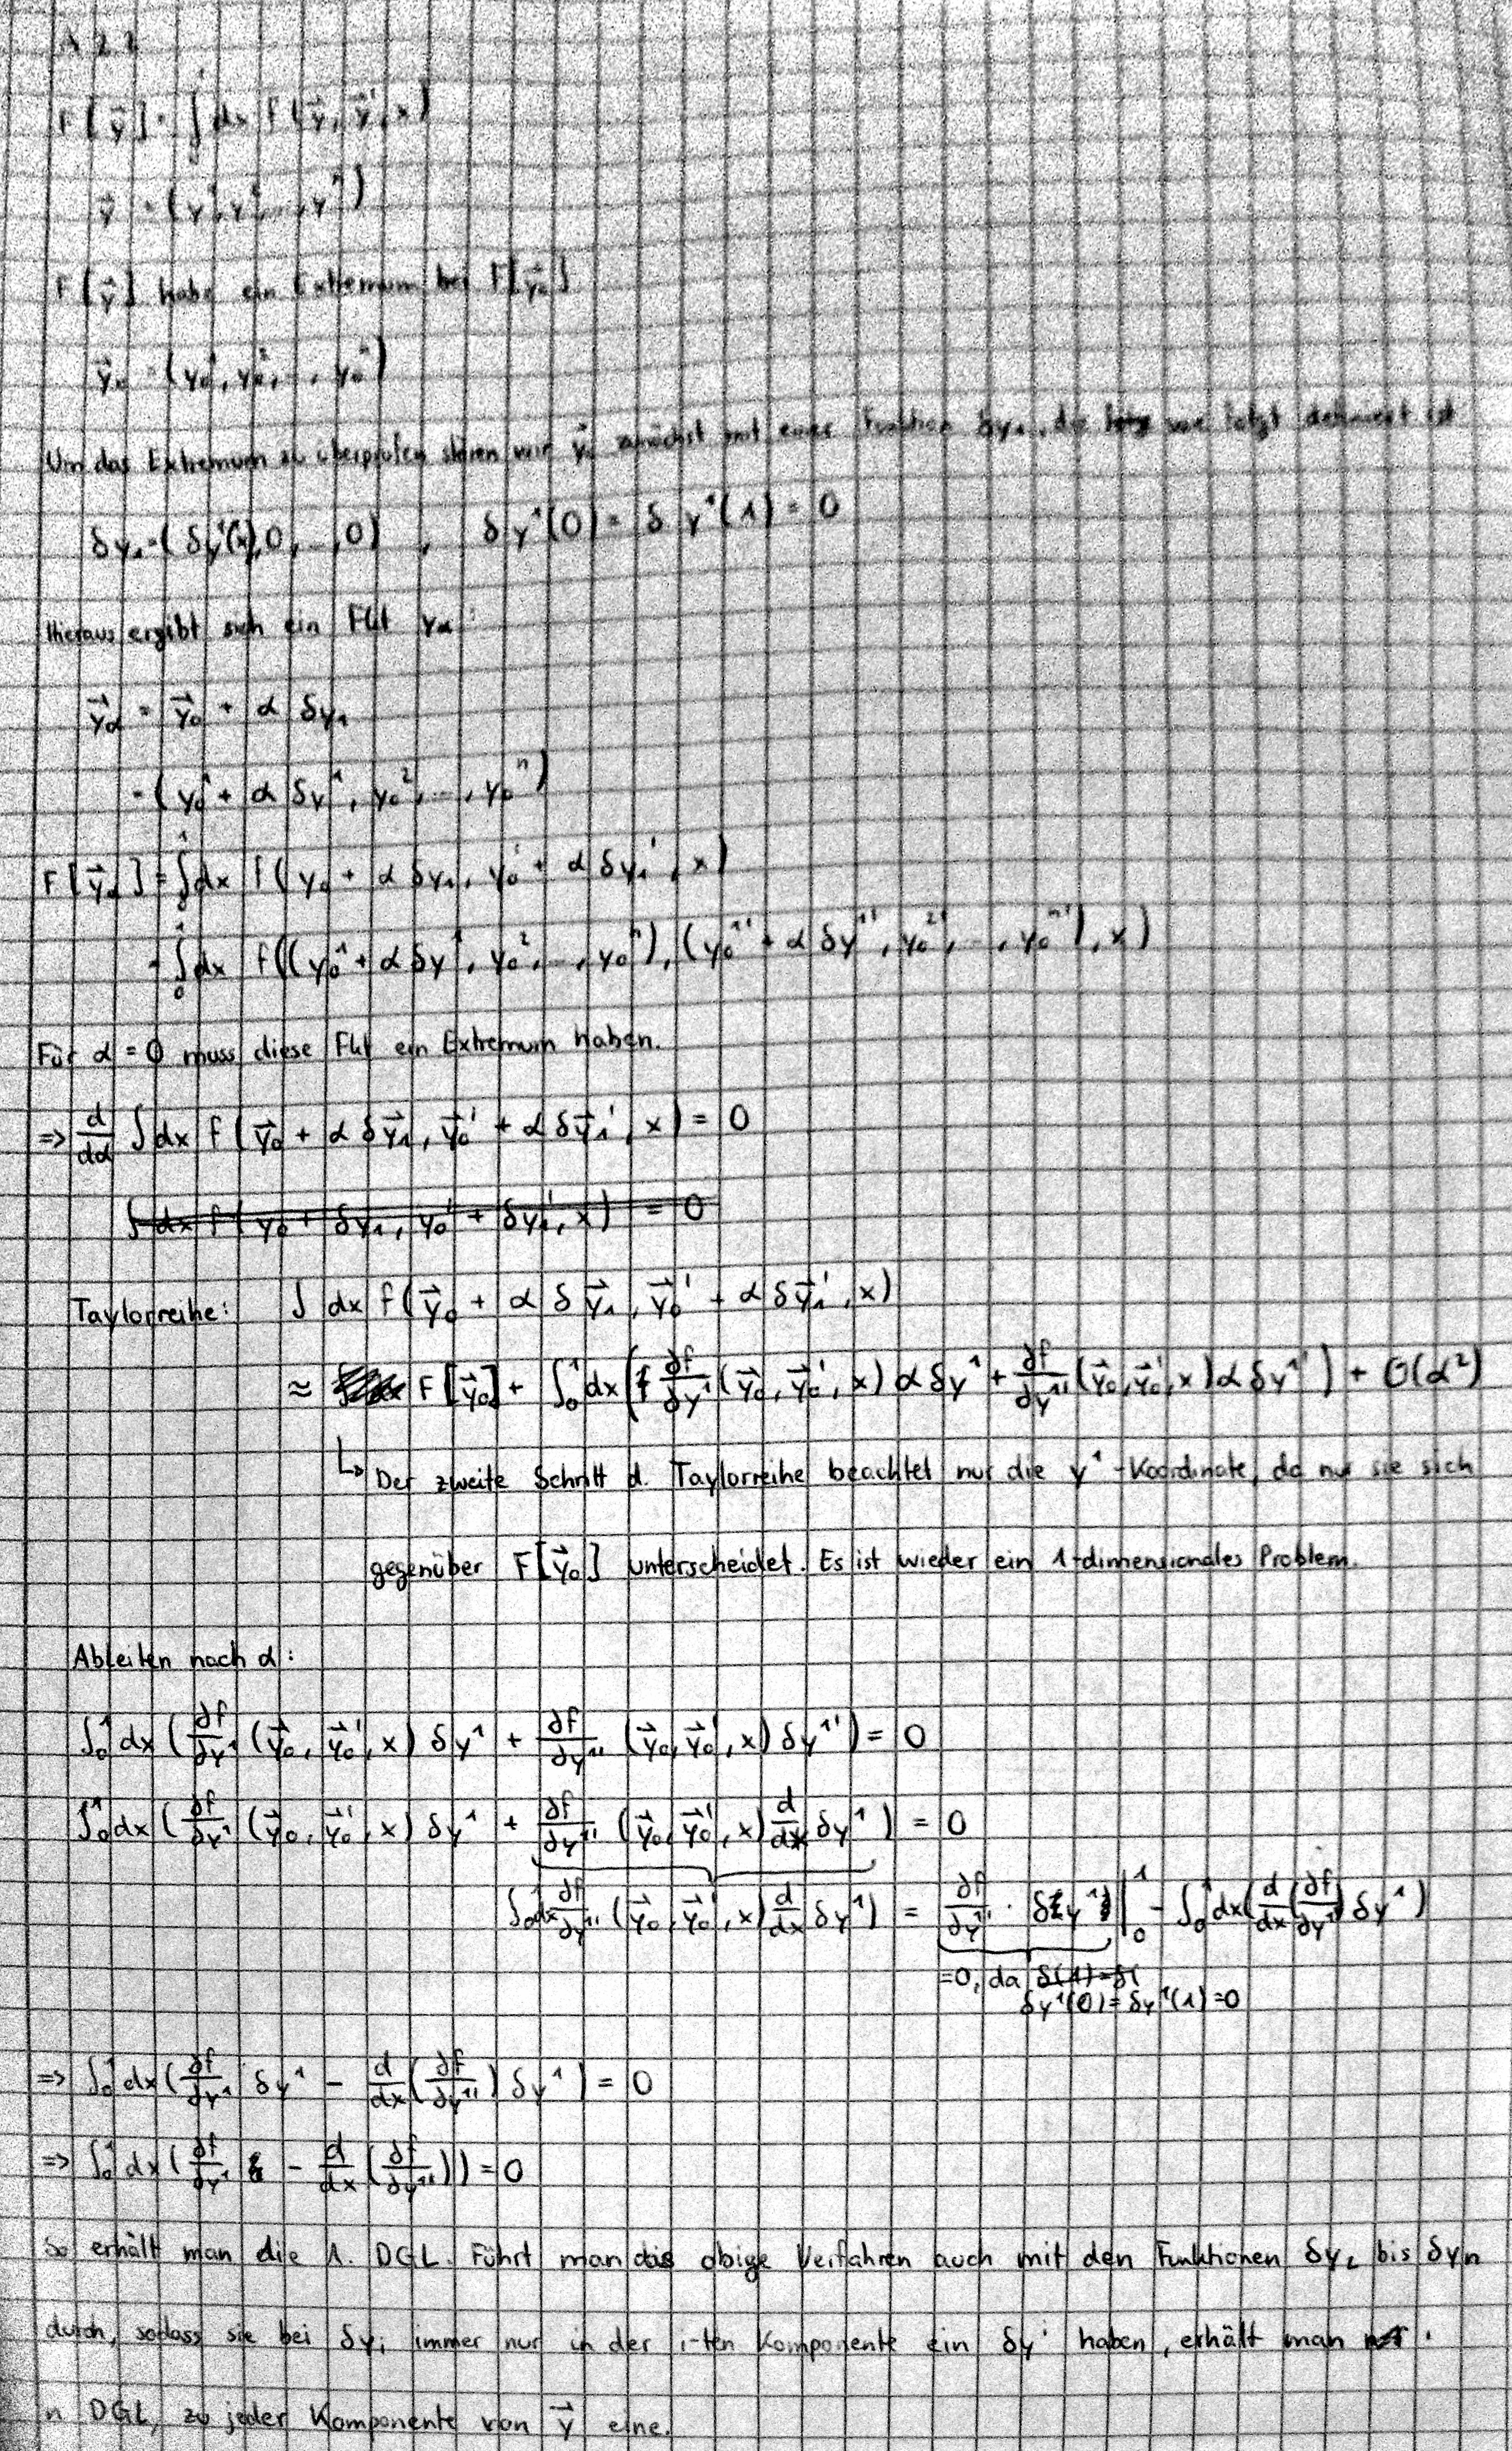 A 2.2
F[y⃗] = ∫₀¹ dx f(y⃗, y⃗', x)
y⃗ = (y¹, y², ..., yⁿ)
F[y⃗] habe ein Extremum bei F[y⃗₀]
y⃗₀ = (y₀¹, y₀², ..., y₀ⁿ)
Um das Extremum zu überprüfen stören wir y⃗₀ zunächst mit einer Funktion δy₁, die wie folgt definiert ist
δy₁ = (δy¹(x), 0, ..., 0) , δy¹(0) = δy¹(1) = 0
Hieraus ergibt sich ein Fkt yα:
y⃗α = y⃗₀ + α δy₁
= (y₀¹ + α δy¹, y₀², ..., y₀ⁿ)
F[y⃗α] = ∫₀¹ dx f(y₀ + α δy₁, y₀' + α δy₁', x)
= ∫₀¹ dx f((y₀¹ + α δy¹, y₀², ..., y₀ⁿ), (y₀¹' + α δy¹', y₀²', ..., y₀ⁿ'), x)
Für α = 0 muss diese Fkt ein Extremum haben.
=> d/dα ∫ dx f(y⃗₀ + α δy⃗₁, y⃗₀' + α δy⃗₁', x) = 0
∫ dx f(y₀ + δy₁, y₀' + δy₁', x) = 0
Taylorreihe: ∫ dx f(y⃗₀ + α δy⃗₁, y⃗₀' + α δy⃗₁', x)
≈ F[y⃗₀] + ∫₀¹ dx (∂f/∂y¹ (y⃗₀, y⃗₀', x) α δy¹ + ∂f/∂y¹' (y⃗₀, y⃗₀', x) α δy¹') + O(α²)
↳ Der zweite Schritt d. Taylorreihe beachtet nur die y¹-Koordinate, da nur sie sich
gegenüber F[y⃗₀] unterscheidet. Es ist wieder ein 1-dimensionales Problem.
Ableiten nach α:
∫₀¹ dx (∂f/∂y¹ (y⃗₀, y⃗₀', x) δy¹ + ∂f/∂y¹' (y⃗₀, y⃗₀', x) δy¹') = 0
∫₀¹ dx (∂f/∂y¹ (y⃗₀, y⃗₀', x) δy¹ + ∂f/∂y¹' (y⃗₀, y⃗₀', x) d/dx δy¹) = 0
∫₀¹ dx ∂f/∂y¹' (y⃗₀, y⃗₀', x) d/dx δy¹) = ∂f/∂y¹' · δy¹ |₀¹ - ∫₀¹ dx (d/dx (∂f/∂y¹') δy¹)
=0, da δ(1)=δ(
δy¹(0) = δy¹(1) = 0
=> ∫₀¹ dx (∂f/∂y¹ δy¹ - d/dx (∂f/∂y¹') δy¹) = 0
=> ∫₀¹ dx (∂f/∂y¹ - d/dx (∂f/∂y¹')) = 0
So erhält man die 1. DGL. Führt man das obige Verfahren auch mit den Funktionen δy₂ bis δyn
durch, sodass sie bei δyᵢ immer nur in der i-ten Komponente ein δyⁱ haben, erhält man
n DGL, zu jeder Komponente von y⃗ eine.